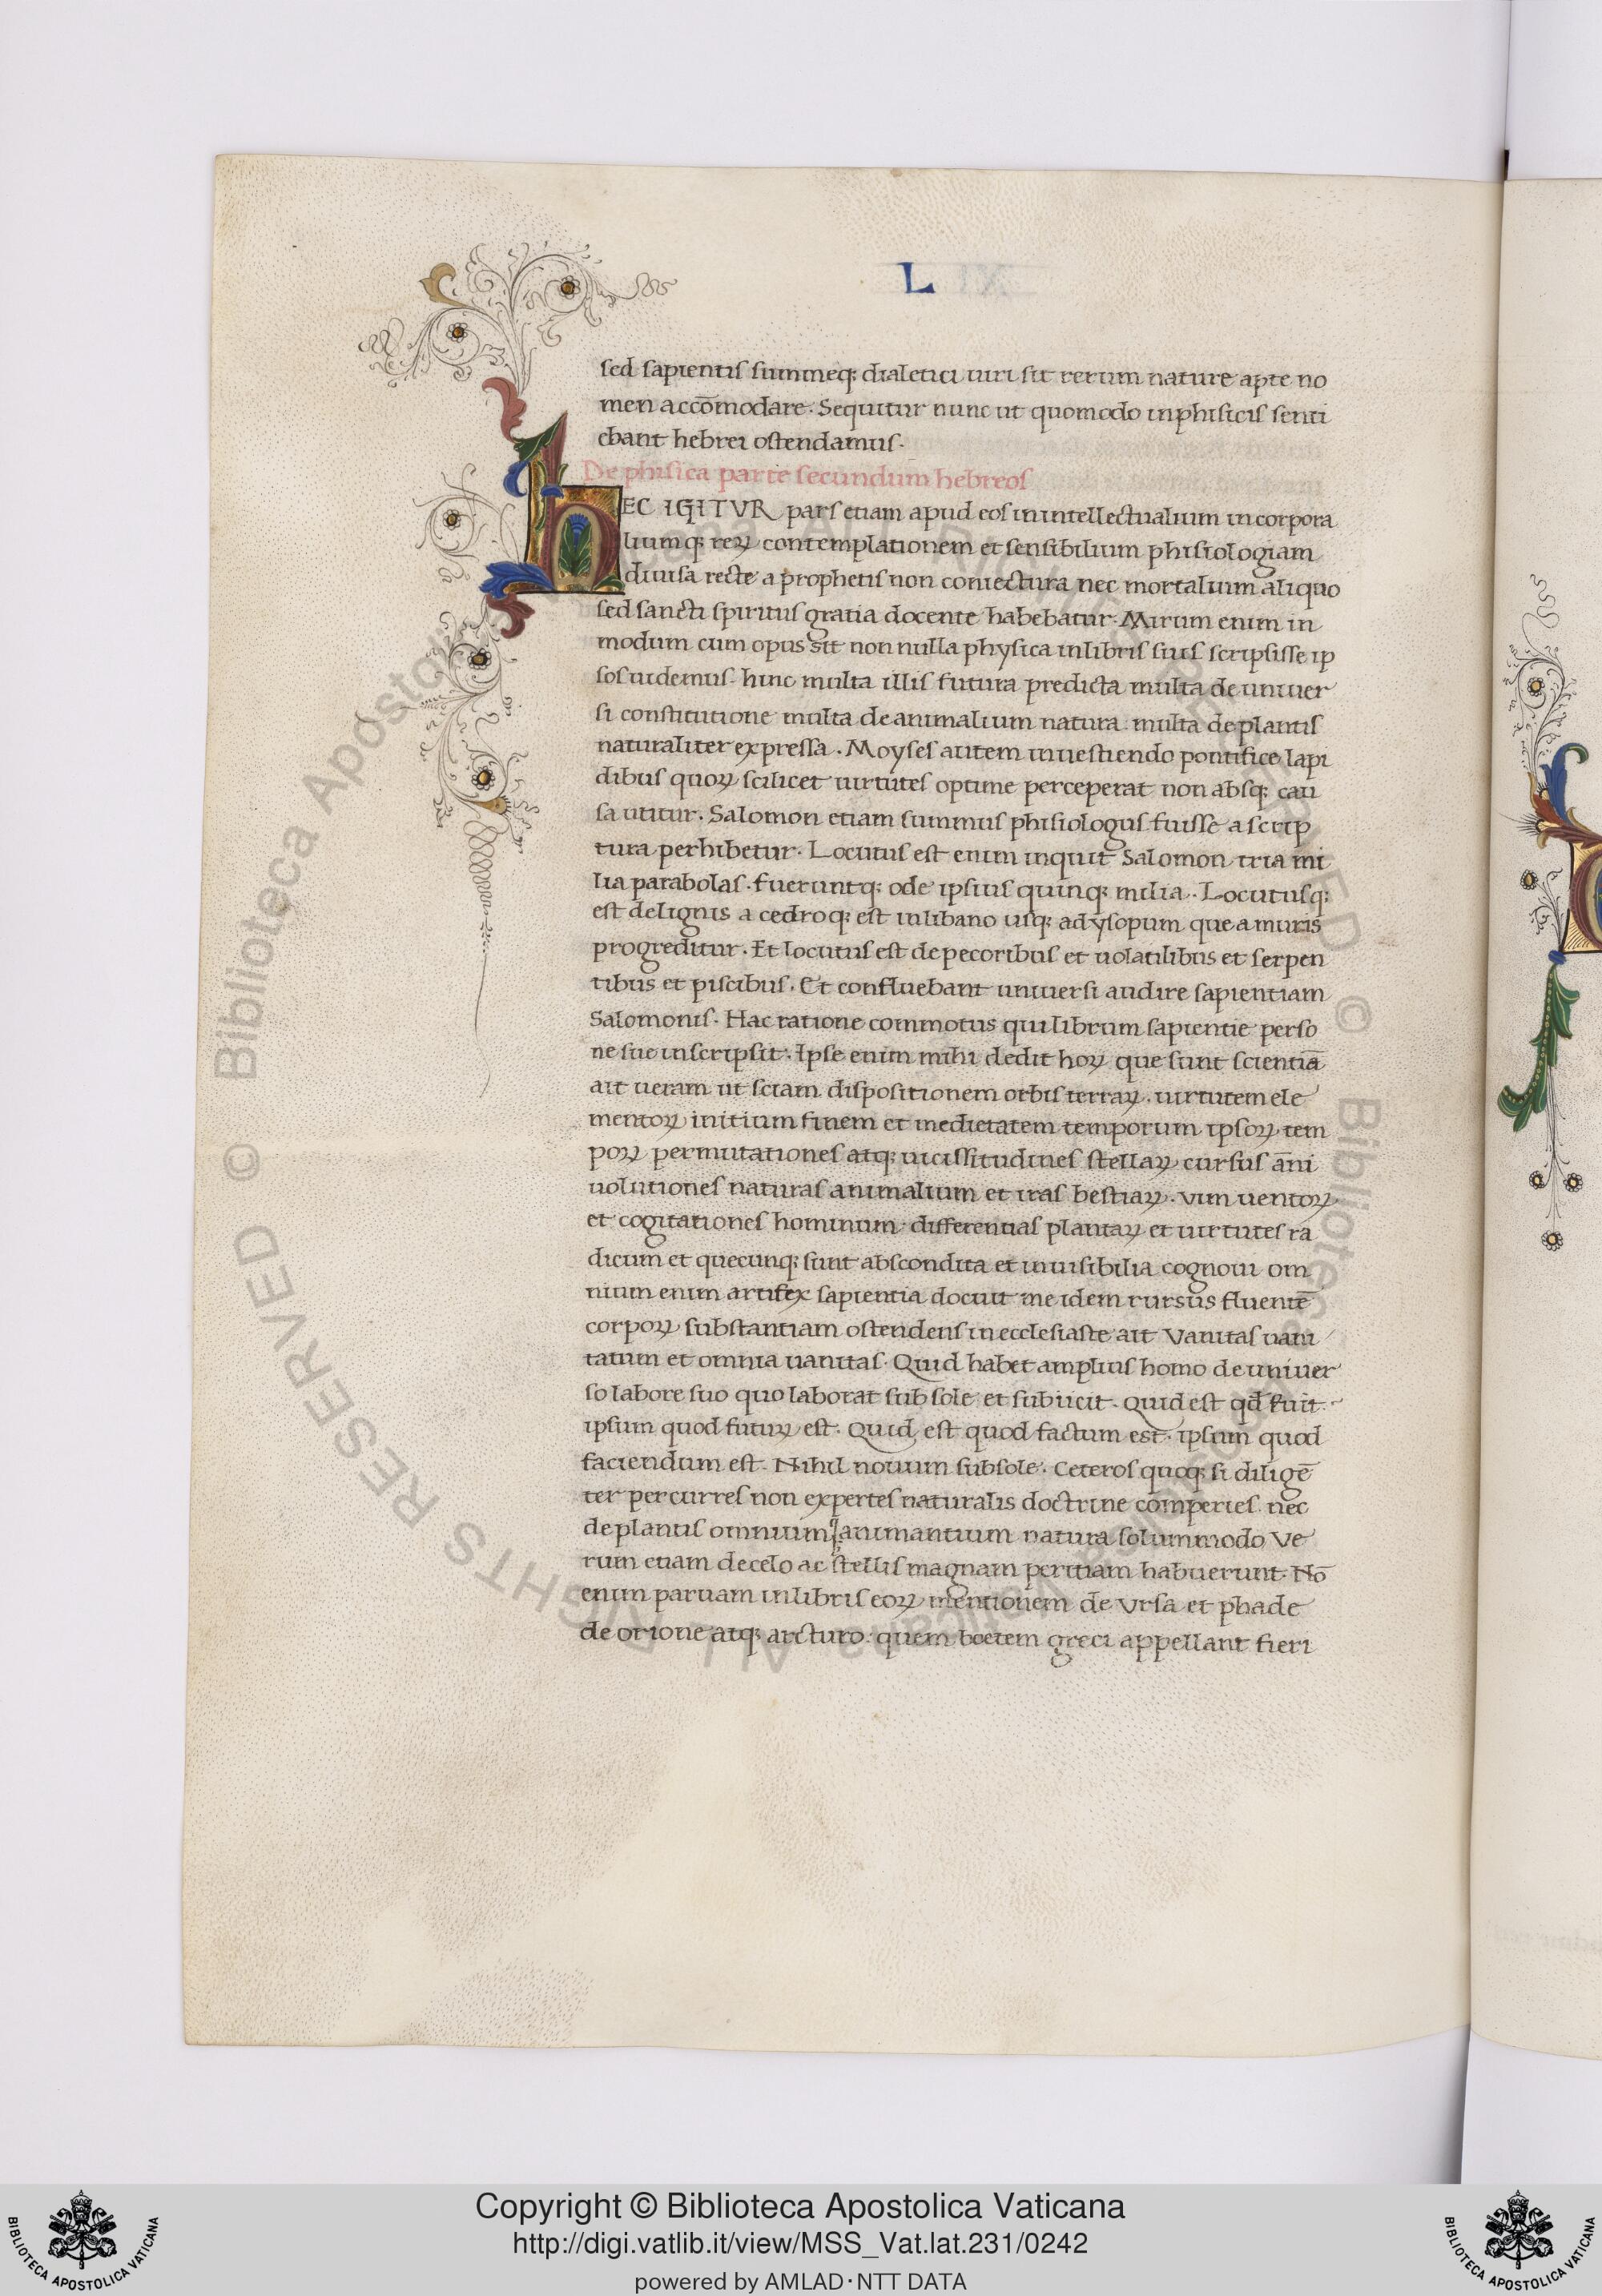 L
sed sapientis summeq; dialetici uiri sit rerum nature apte no
men accōmodare. Sequitur nunc ut quomodo in phisicis senti
ebant hebrei ostendamus.
De phisica parte secundum hebreos
HEC IGITVR pars etiam apud eos in intellectualium incorpora
liumq; reꝝ contemplationem et sensibilium phisiologiam
diuisa recte a prophetis non coniectura nec mortalium aliquo
sed sancti spiritus gratia docente habebatur. Mirum enim in
modum cum opus sit non nulla physica in libris suis scripsisse ip
sos uidemus. hinc multa illis futura predicta multa de uniuer
si constitutione multa de animalium natura. multa de plantis
naturaliter expressa. Moyses autem in uestiendo pontifice lapi
dibus quoꝝ scilicet uirtutes optime perceperat non absq; cau
sa utitur. Salomon etiam summus phisiologus fuisse a scrip
tura perhibetur. Locutus est enim inquit Salomon tria mi
lia parabolas. fueruntq; ode ipsius quinq; milia. Locutusq;
est de lignis a cedro q; est in libano usq; ad ysopum que a muris
progreditur. Et locutus est de pecoribus et uolatilibus et serpen
tibus et piscibus. Et confluebant uniuersi audire sapientiam
Salomonis. Hac ratione commotus qui librum sapientie perso
ne sue inscripsit. Ipse enim mihi dedit hoꝝ que sunt scientiā
ait ueram ut sciam dispositionem orbis terraꝝ. uirtutem ele
mentoꝝ initium finem et medietatem temporum ipsoꝝ tem
poꝝ permutationes atq; uicissitudines stellaꝝ cursus āni
uolutiones naturas animalium et iras bestiaꝝ. vim uentoꝝ
et cogitationes hominum. differentias plantaꝝ et uirtutes ra
dicum et quecunq; sunt abscondita et inuisibilia cognoui om
nium enim artifex sapientia docuit me idem rursus fluentē
corpoꝝ substantiam ostendens in ecclesiaste ait Vanitas uani
tatum et omnia uanitas. Quid habet amplius homo de uniuer
so labore suo quo laborat sub sole et subiicit. Quid est qđ fuit.
ipsum quod futuꝝ est. Quid est quod factum est. ipsum quod
faciendum est. Nihil nouum sub sole. Ceteros quoq; si diligē
ter percurres non expertes naturalis doctrine comperies. nec
de plantis omnium animantium natura solummodo Ve
rum etiam de celo ac stellis magnam peritiam habuerunt. Nō
enim paruam in libris eoꝝ mentionem de Vrsa et phade
de orione atq; arcturo. quem boetem greci appellant fieri
Copyright © Biblioteca Apostolica Vaticana
http://digi.vatlib.it/view/MSS_Vat.lat.231/0242
powered by AMLAD·NTT DATA
BIBLIOTECA APOSTOLICA VATICANA
BIBLIOTECA APOSTOLICA VATICANA